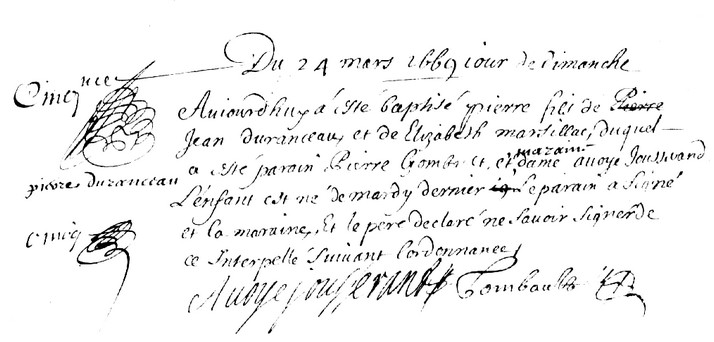 Du 24 mars 1669 jour de dimanche
Cinq
Aujourdhuy a esté baptisé pierre fils de Pierre
Jean Duranceau, et de Elizabeth marsillac, duquel
maraine
a esté parain Pierre Gombault, et dame auoye Jousserand
pierre duranceau
L'enfant est né de mardy dernier le parain a signé
et la maraine, Et le père declaré ne sauoir signer de
cinq
ce Interpellé suivant Lordonnance
Auoye jousserand Gombault